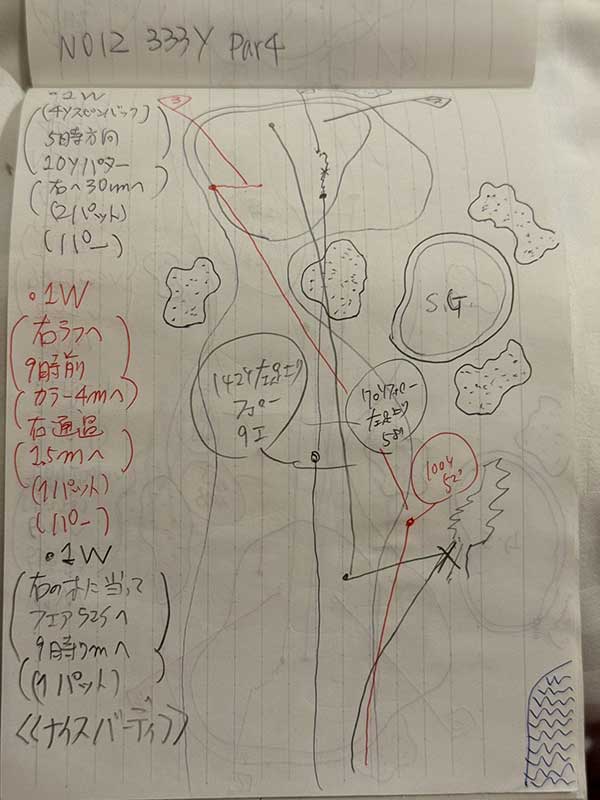 NO12 333Y Par4
・1W
(4Yスピンバック)
5時方向
10Yパター
右へ30cmへ
(2パット)
(パー)
・1W
右ラフへ
9時前
カラー4mへ
右通過
1.5mへ
(1パット)
(パー)
・1W
右の木に当って
フェアウェイへ
9時7mへ
(1パット)
<<ナイスバーディ>>
3
S.G
142Y左足上り
フォロー
9I
170Yフォロー
左足上り
100Y
52°